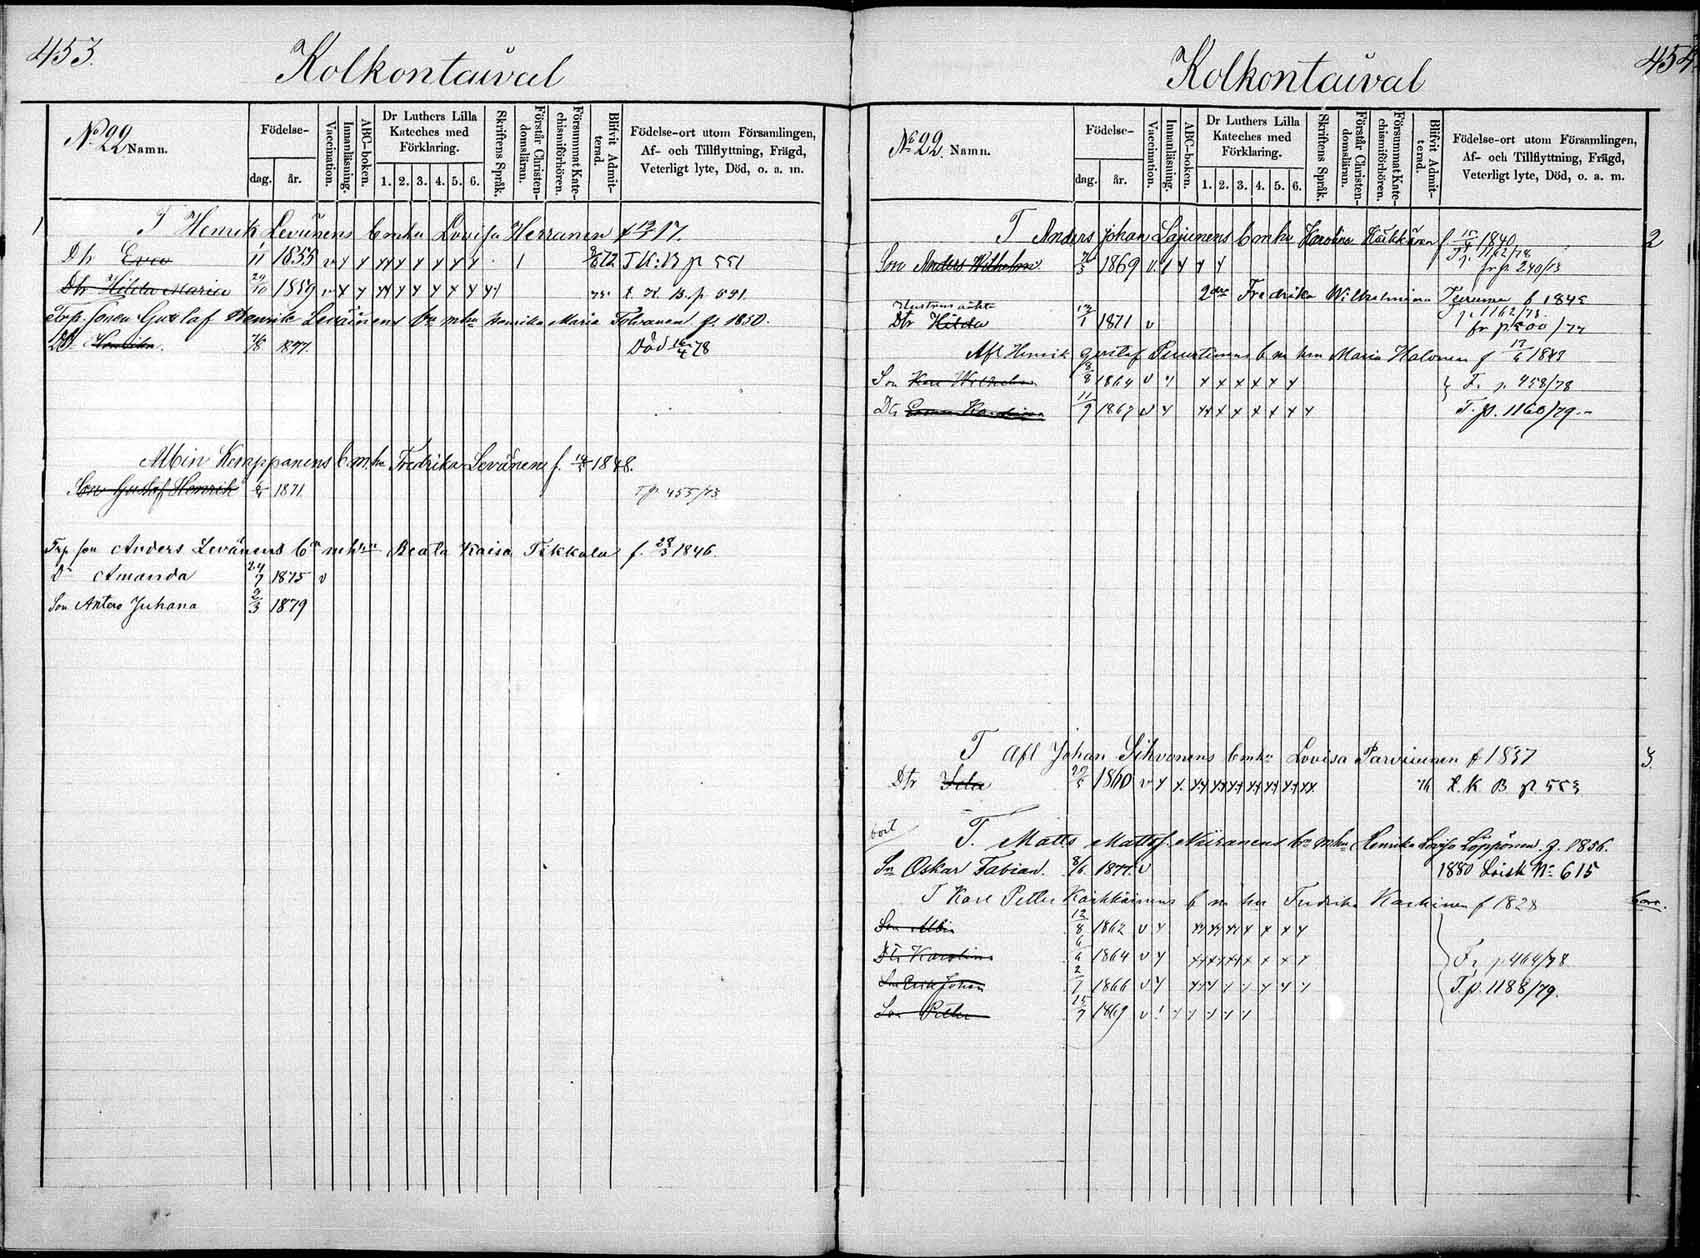 453.
Kolkontaival
No 22 Namn.
Födelse-
dag. år.
Vaccination.
Innanläsning.
ABC-boken.
Dr Luthers Lilla Kateches med Förklaring.
1. 2. 3. 4. 5. 6.
Skriftens Språk.
Förstår Christendomsläran.
Försummat Katechismiförhören.
Blifvit Admitterad.
Födelse-ort utom Församlingen, Af- och Tillflyttning, Frägd, Veterligt lyte, Död, o. a. m.
1
T Henrik Levänens Enka Lovisa Herranen f 17.
Dtr Eva 1/11 1855 72 T. K: B p 551
Dtr Hilda Maria 29/10 1859 75 t. K. B. p. 551.
Torp. sonen Gustaf Henrik Levänens bn m hu Henrika Maria Tolvanen f. 1850.
Dtr 1877. Död 16/4 78
Albin Kemppanens b m hu Fredrika Levänen f. 1848.
Son Gustaf Henrik 1871. T p 455/73
Trp son Anders Levänens bn m hun Beata Kaisa Tikkala f. 28/3 1846.
Dr Amanda 24/7 1875 v
Son Antero Juhana 2/3 1879
454.
Kolkontaival
No 22. Namn.
Födelse-
dag. år.
Vaccination.
Innanläsning.
ABC-boken.
Dr Luthers Lilla Kateches med Förklaring.
1. 2. 3. 4. 5. 6.
Skriftens Språk.
Förstår Christendomsläran.
Försummat Katechismiförhören.
Blifvit Admitterad.
Födelse-ort utom Församlingen, Af- och Tillflyttning, Frägd, Veterligt lyte, Död, o. a. m.
2
T Anders Johan Lajunens b m hu Karolina f 1840
Son Anders Wilhelm 1869 fr p. 240/73
2dra Fredrika Wilhelmina f 1845
p 1162/78.
Hustruns oäkta
Dtr Hilda 1871 v fr p 200/77
Afl Henrik Gustaf b m hu Maria Halonen f 17/6 1843
Son Karl Wilhelm 8/8 1864 v F. p. 458/78
Dtr Emma Karolina 11/9 1867 v T. p. 1160/79.
3.
T Afl Johan Sihvonens Enka Lovisa Parviainen f 1837
Dtr Ida 27/5 1860 76 t. K B p 553
bort
T. Matts Mattsf. Niiranens bn m hu Henrika Lovisa Löppönen f. 1856.
Son Oskar Fabian. 8/6 1877. v 1880 Loisk No 615
T Karl Petter Kärkkäinens b m hu Fredrika Karkinen f 1828 bort.
Son Albin 12/8 1862 v
Dtr Karolina 6/6 1864 v F. p 464/78
Son Erik Johan 2/7 1866 v T. p. 1188/79.
Son Petter 15/7 1869 v